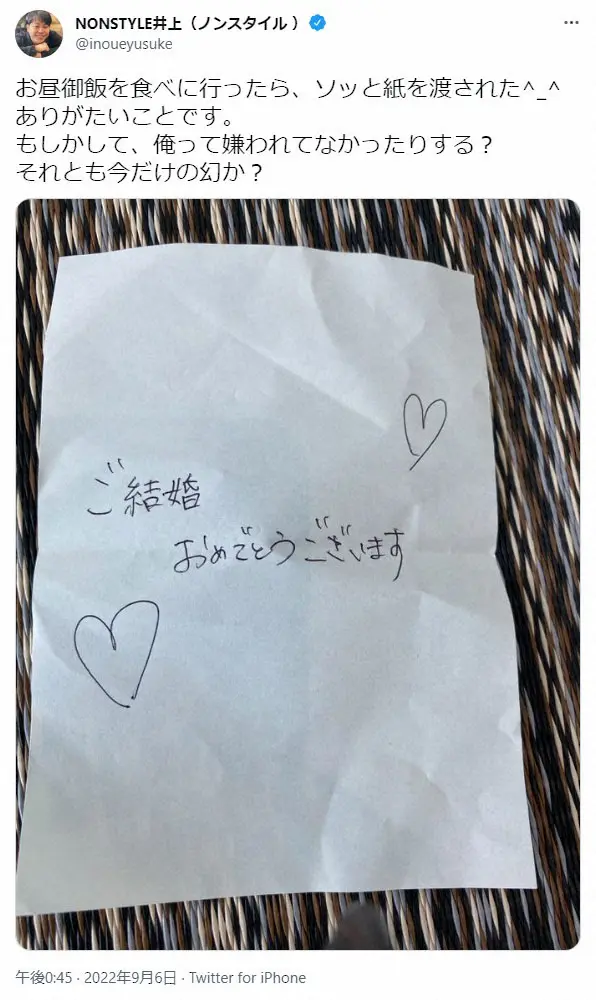 NONSTYLE井上（ノンスタイル ）
@inoueyusuke
お昼御飯を食べに行ったら、ソッと紙を渡された^_^
ありがたいことです。
もしかして、俺って嫌われてなかったりする？
それとも今だけの幻か？
ご結婚
おめでとうございます
午後0:45 · 2022年9月6日 · Twitter for iPhone